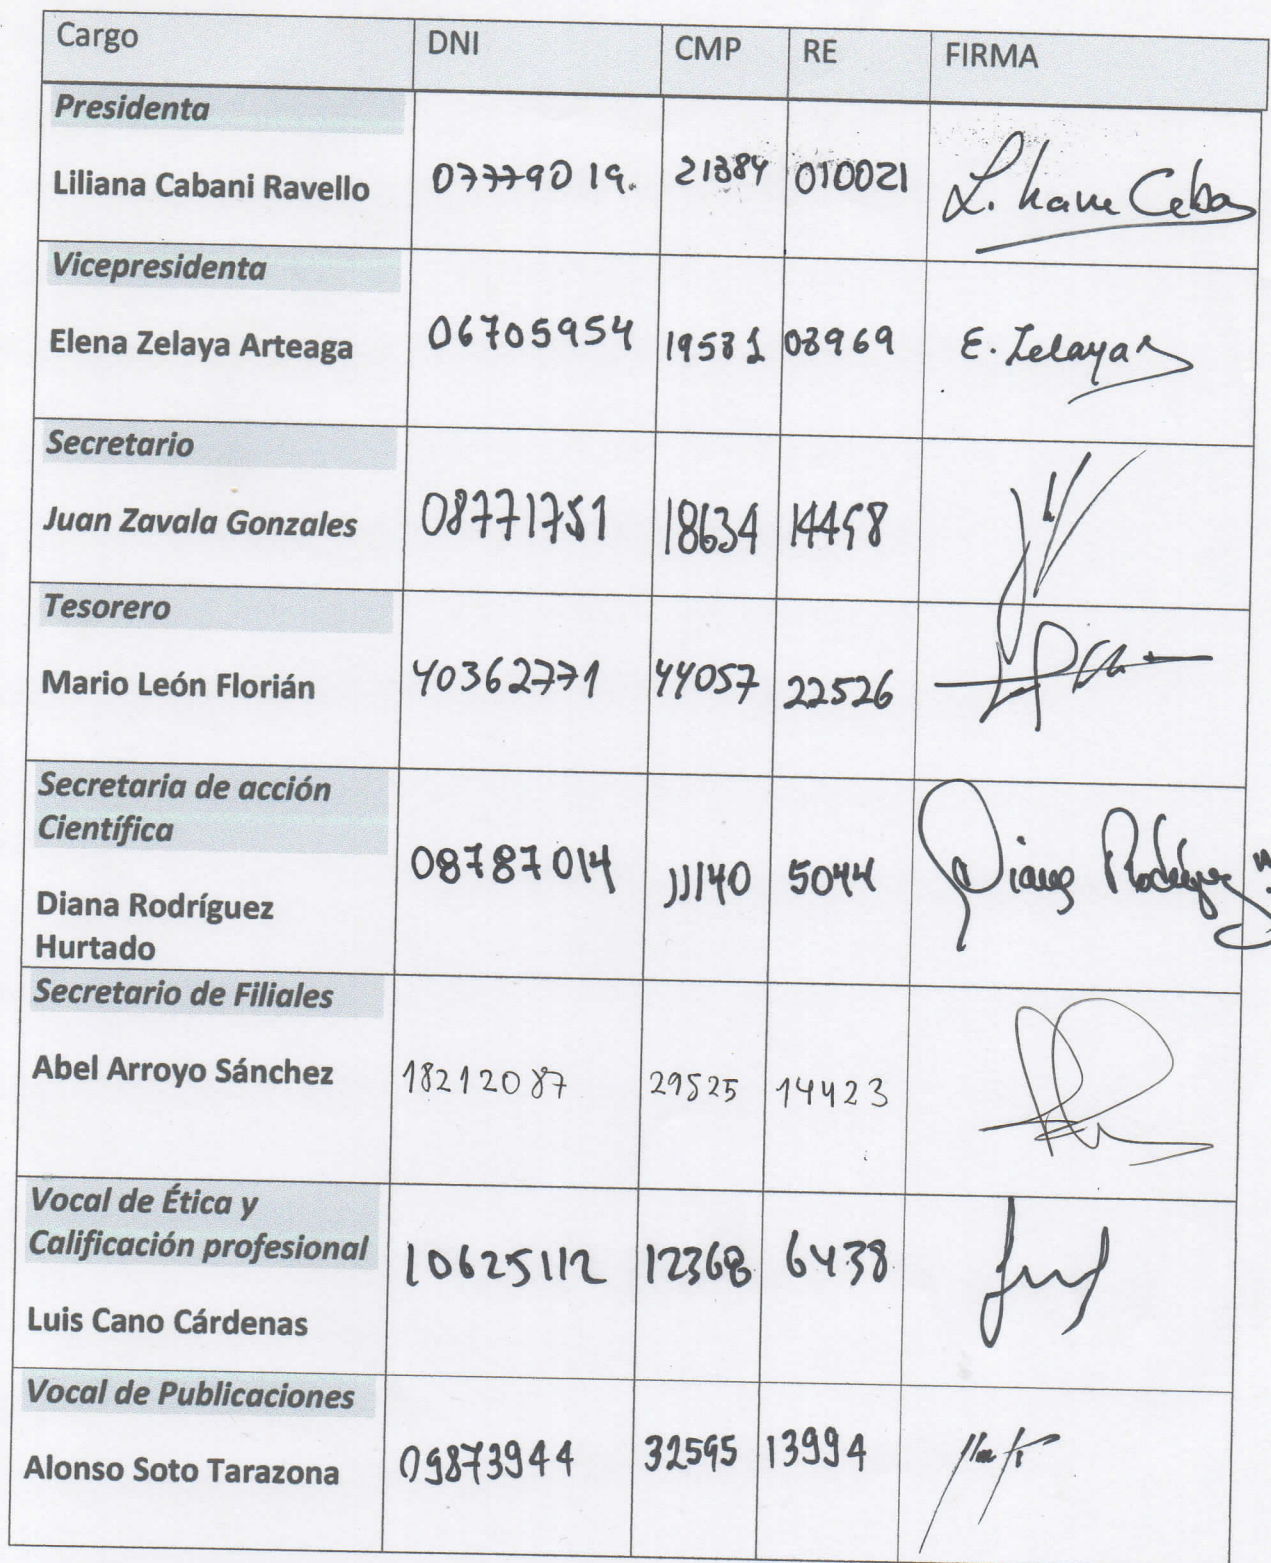 Cargo DNI CMP RE FIRMA
Presidenta
Liliana Cabani Ravello 07779019. 21384 010021
Vicepresidenta
Elena Zelaya Arteaga 06705954 19531 03969 E. Zelaya
Secretario
Juan Zavala Gonzales 08771751 18634 14458
Tesorero
Mario León Florián 40362771 44057 22526
Secretaria de acción
Científica
08787014 11140 5044 Diana Rodríguez
Diana Rodríguez
Hurtado
Secretario de Filiales
Abel Arroyo Sánchez 18212087 29525 14423
Vocal de Ética y
Calificación profesional
10625112 12368 6438
Luis Cano Cárdenas
Vocal de Publicaciones
Alonso Soto Tarazona 09873944 32595 13994